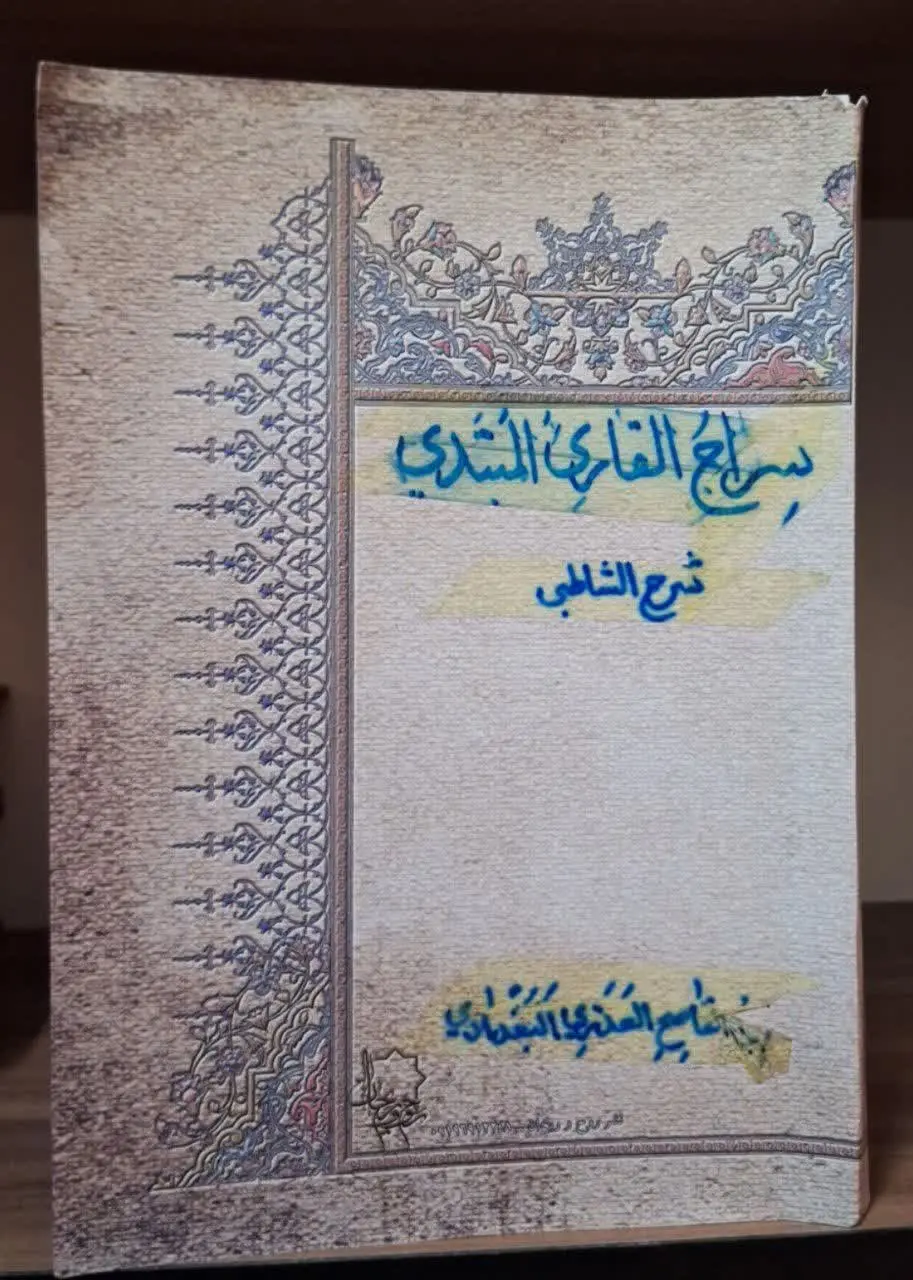 سِراجُ القارِئُ المُبْتَدي
شرح الشاطبي
القاصِحِ العَذري البَغْدادي